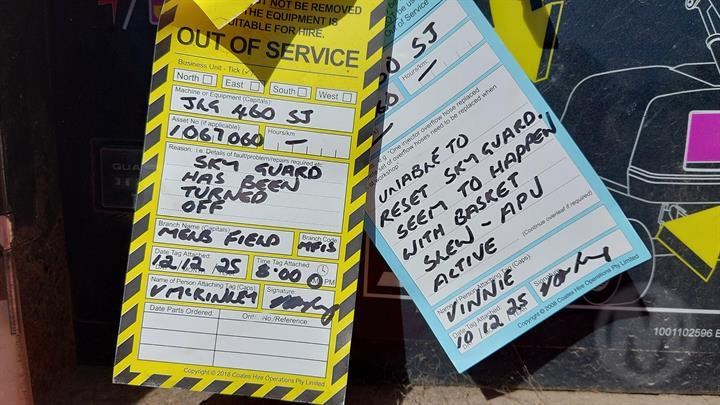 NOT BE REMOVED
THE EQUIPMENT IS
SUITABLE FOR HIRE.
OUT OF SERVICE
Business Unit - Tick (✓)
North East South West
Machine or Equipment (Capitals)
JLG 460 SJ
Asset No (if applicable) Hours/km:
1067060 -
Reason: i.e. Details of fault/problem/repairs required etc.
SKY GUARD
HAS BEEN
TURNED
OFF
Branch Name (Capitals) Branch Code
MELB FIELD
Date Tag Attached: Time Tag Attached:
12/12/25 8:00 PM
Name of Person Attaching Tag (Caps): Signature:
V MCKINLEY
Date Parts Ordered: No./Reference:
Copyright © 2018 Coates Hire Operations Pty Limited
of Service
60 SJ
Hours/km:
60 -
e.g. "One injector overflow hose replaced
set of overflow hoses need to be replaced when
workshop"
UNABLE TO
RESET SKYGUARD.
SEEM TO HAPPEN
WITH BASKET
SLEW - APU
ACTIVE
(Continue overleaf if required)
Name of Person Attaching Tag (Caps) Signature:
VINNIE
Date Tag Attached:
10/12/25
Copyright © 2008 Coates Hire Operations Pty Limited
1001102596